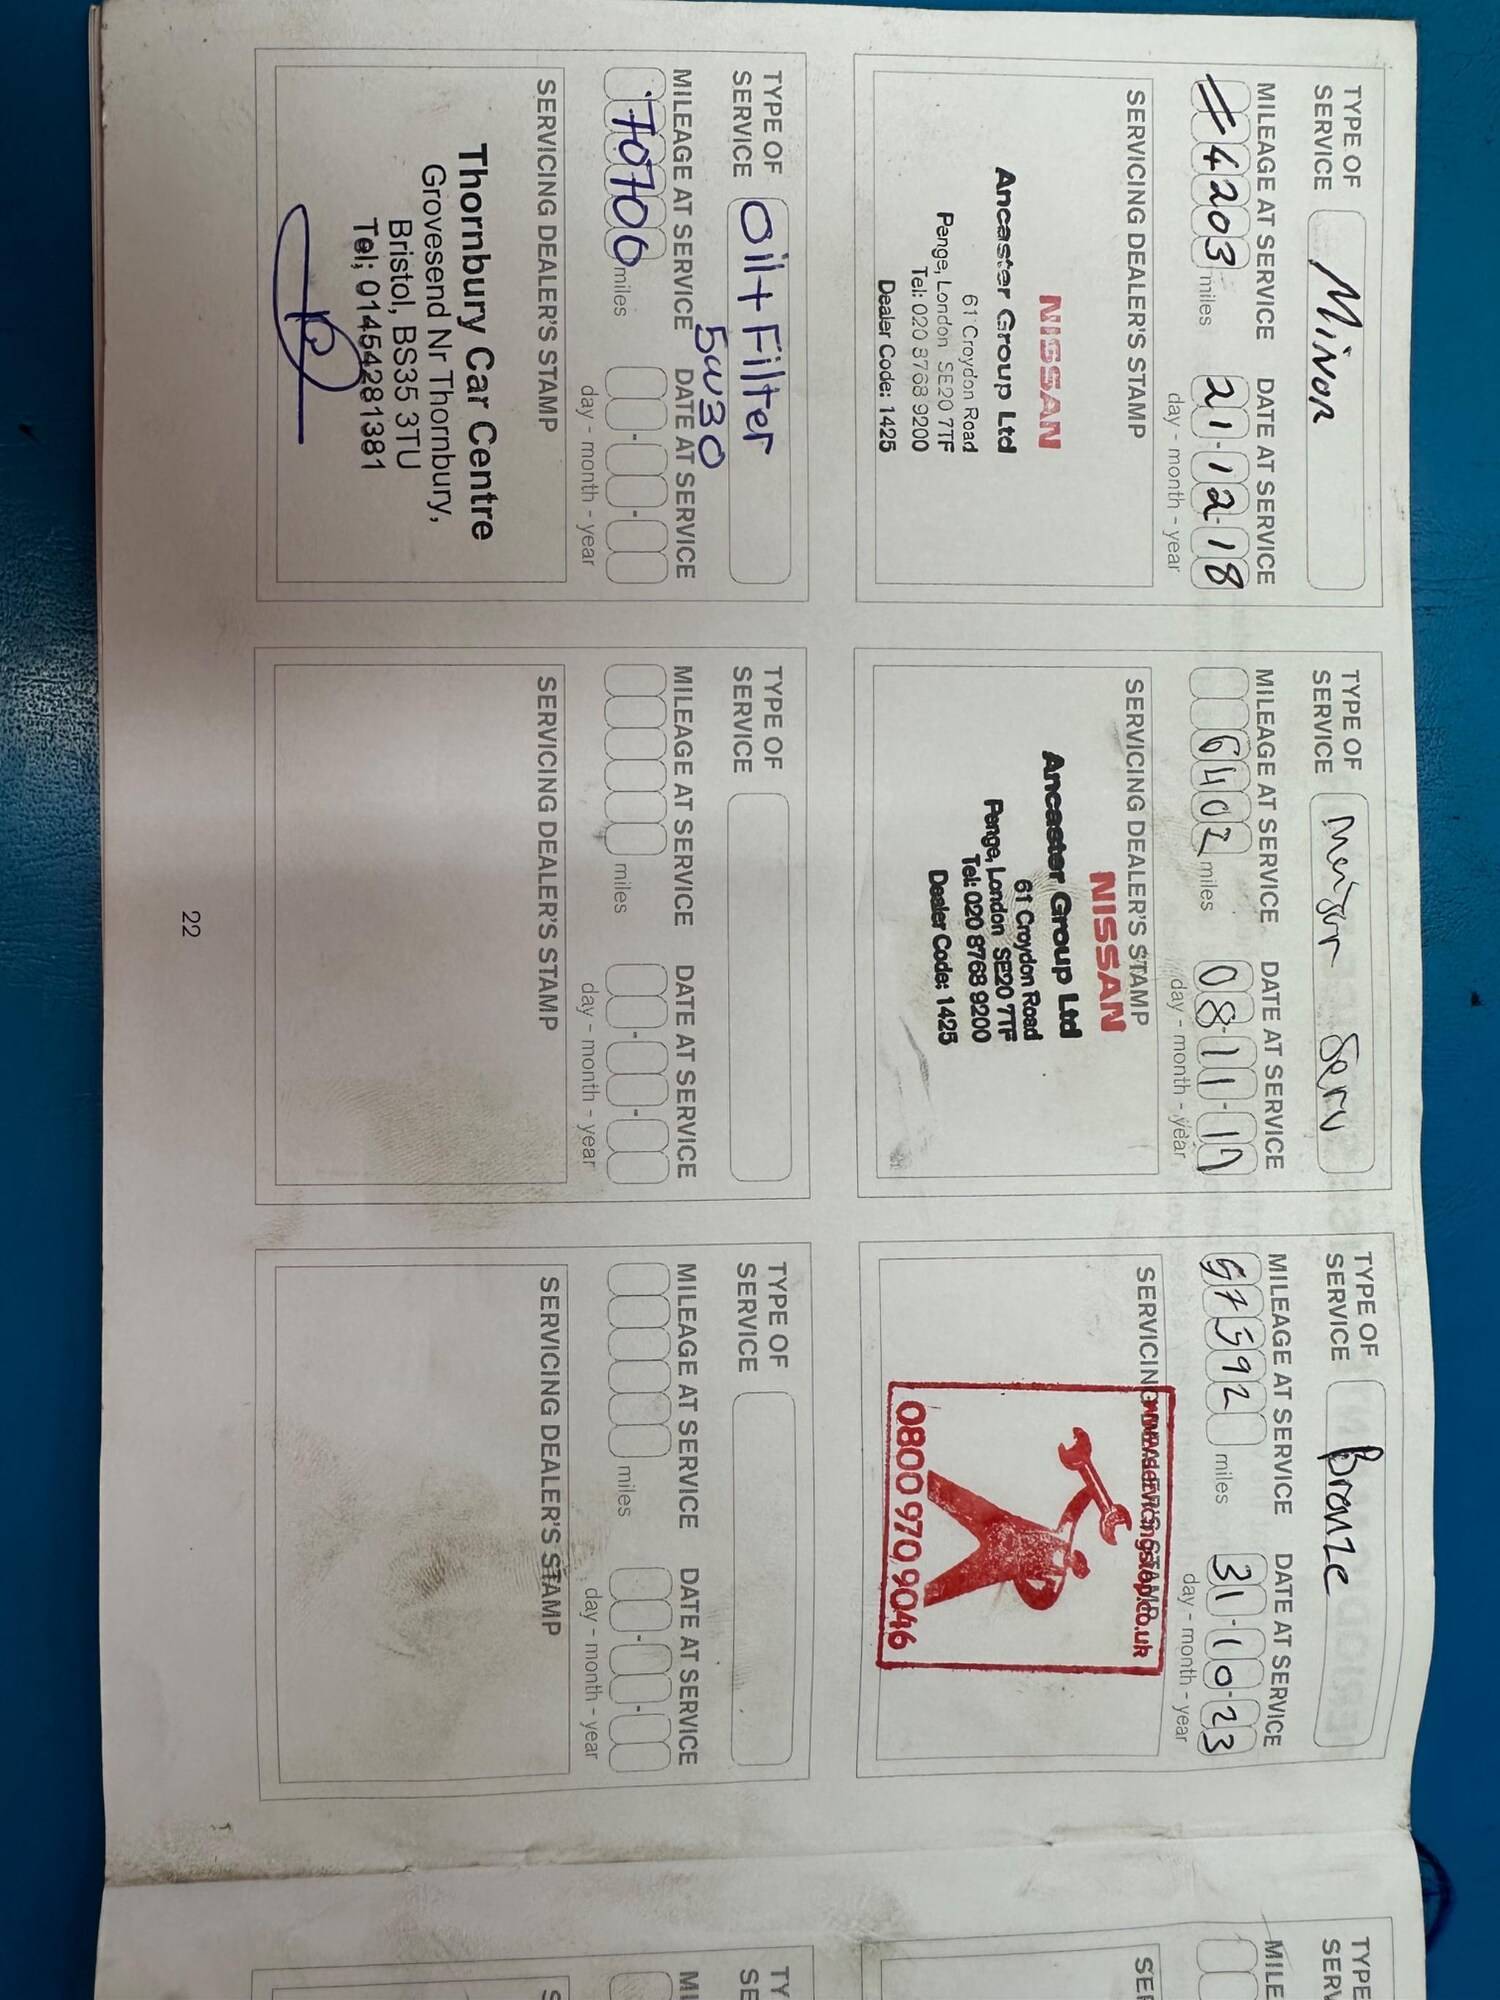 TYPE OF
SERVICE
Minor
MILEAGE AT SERVICE
DATE AT SERVICE
4203 miles
21-12-18
day - month - year
SERVICING DEALER'S STAMP
NISSAN
Ancaster Group Ltd
61 Croydon Road
Penge, London SE20 7TF
Tel: 020 8768 9200
Dealer Code: 1425
TYPE OF
SERVICE
Serv
MILEAGE AT SERVICE
DATE AT SERVICE
6402 miles
08-11-19
day - month - year
SERVICING DEALER'S STAMP
NISSAN
Ancaster Group Ltd
61 Croydon Road
Penge, London SE20 7TF
Tel: 020 8768 9200
Dealer Code: 1425
TYPE OF
SERVICE
Bronze
MILEAGE AT SERVICE
DATE AT SERVICE
miles
31-10-23
day - month - year
SERVICING DEALER'S STAMP
0800 970 9046
TYPE OF
SERVICE
Oil + Filter
5W30
MILEAGE AT SERVICE
DATE AT SERVICE
70700 miles
day - month - year
SERVICING DEALER'S STAMP
Thornbury Car Centre
Grovesend Nr Thornbury,
Bristol, BS35 3TU
Tel; 01454281381
TYPE OF
SERVICE
MILEAGE AT SERVICE
DATE AT SERVICE
miles
day - month - year
SERVICING DEALER'S STAMP
TYPE OF
SERVICE
MILEAGE AT SERVICE
DATE AT SERVICE
miles
day - month - year
SERVICING DEALER'S STAMP
22
TYPE
SERV
MILE
SER
TY
SE
MI
S